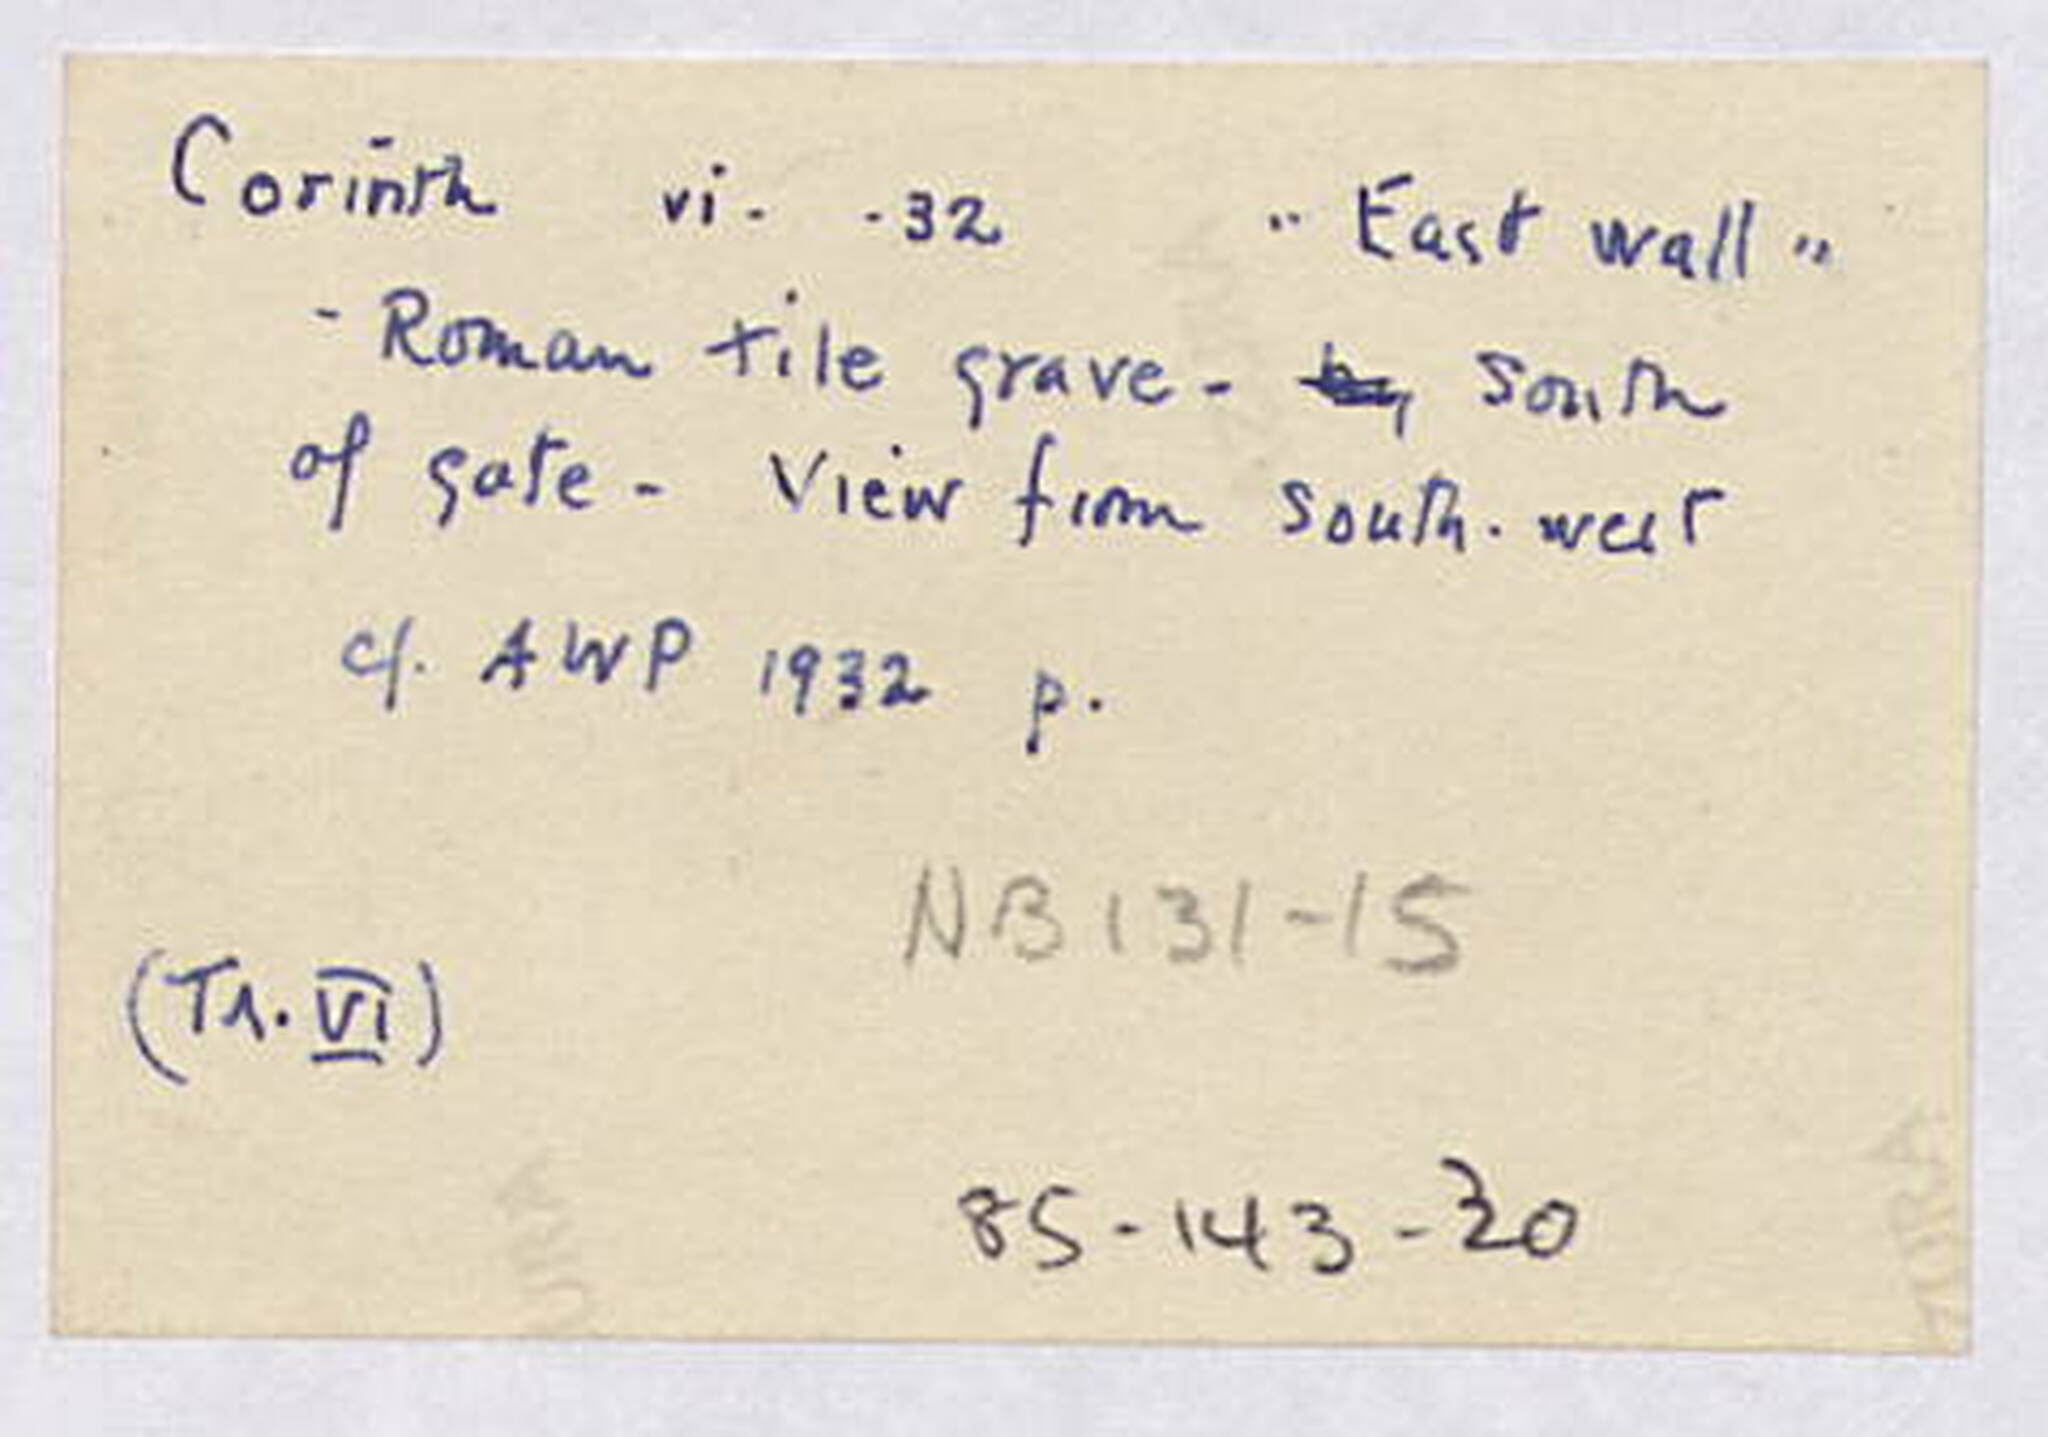 Corinth vi- -32 "East wall"
- Roman tile grave - by south
of gate - View from south-west
cf. AWP 1932 p.
NB 131-15
(Tr. VI)
85-143-20